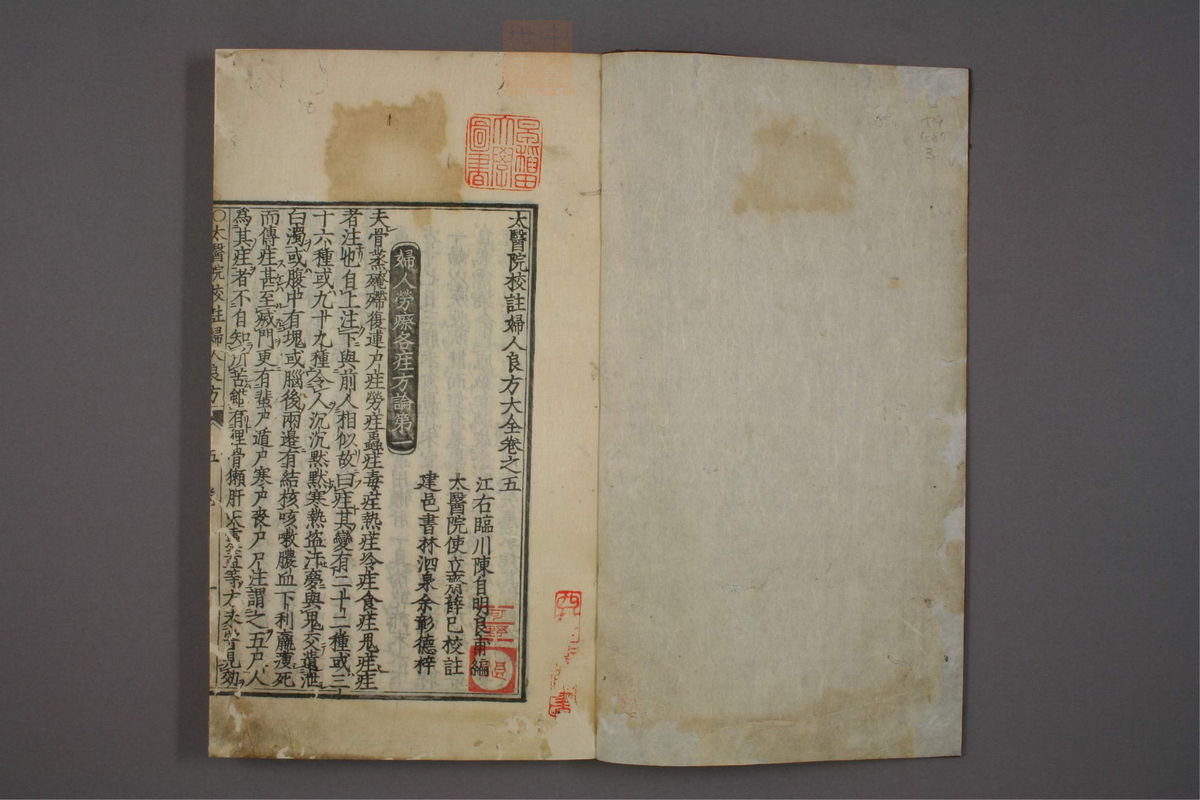 太醫院校註婦人良方大全卷之五
江右臨川陳自明良甫編
太醫院使立齋薛已校註
建邑書林泗泉余彰德梓
婦人勞瘵各疰方論第一
夫骨蒸殗殜復連尸疰勞疰蠱疰毒疰熱疰冷疰食疰鬼疰疰
者注也自上注下與前人相似故曰疰其變有二十二種或三
十六種或九十九種令人沉沉默默寒熱盜汗夢與鬼交遺泄
白濁或腹中有塊或腦後兩邊有結核咳嗽膿血下利羸瘦死
而傳疰甚至滅門更有蜚尸遁尸寒尸喪尸尸注謂之五尸人
為其疰者不自知所苦雖有狸骨獺肝天靈蓋等方未嘗見効
○太醫院校註婦人良方 五卷 一
早稻田大學圖書